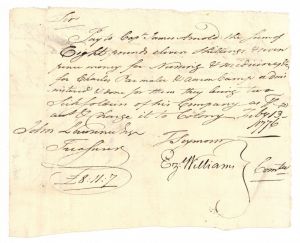 Sir
Pay to Capt James Arnold the Sum of
Eight pounds eleven Shillings & seven
pence money for Nursing & Medicines
for Charles Parmater & Aaron Camp a dmi
nistered & done for them they being two
Soldiers of his Company as
and Charge it to Colony July 13
1776
John Lawrence Esqr
Treasurer
T Seymour
Ez. Williams
Comtee
£8.11.7